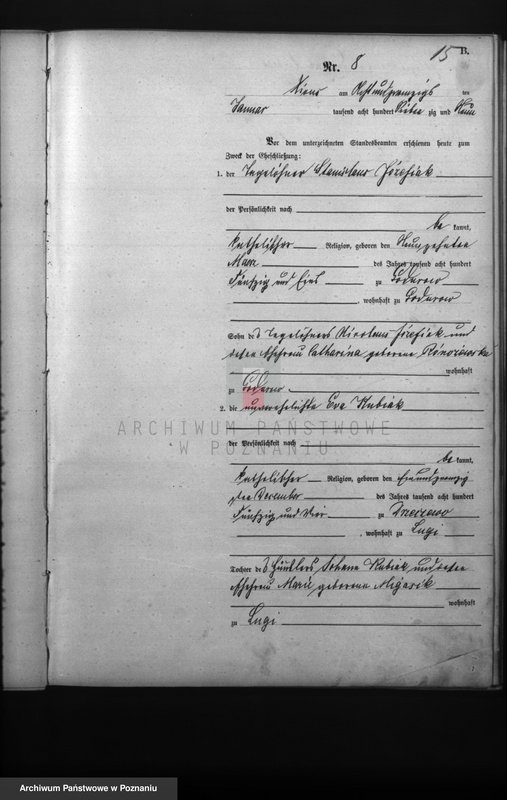 15 B.
Nr. 8
Xions am Achtundzwanzigs ten
Januar tausend acht hundert Siebenzig und Neun
Vor dem unterzeichneten Standesbeamten erschienen heute zum
Zweck der Eheschließung:
1. der Tagelöhner Stanislaus Józefiak
der Persönlichkeit nach
be kannt,
katholischer Religion, geboren den Neunzehnten
März des Jahres tausend acht hundert
Fünfzig und Eins zu
, wohnhaft zu
Sohn des Tagelöhners Józefiak und
dessen Ehefrau Catharina geborene
wohnhaft
zu
2. die unverehelichte Eva Kubiak
der Persönlichkeit nach
be kannt,
katholischer Religion, geboren den Einundzwanzig
sten December des Jahres tausend acht hundert
Fünfzig und Vier zu
, wohnhaft zu Lugi
Tochter des Häuslers Johann Kubiak und dessen
Ehefrau Marie geborene
wohnhaft
zu Lugi
ARCHIWUM PAŃSTWOWE
W POZNANIU
Archiwum Państwowe w Poznaniu